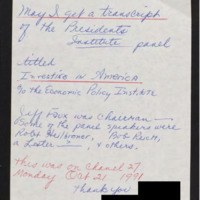 May I get a transcript
of the Presidents
Institute panel
titled
Investing in America
to the Economic Policy Institute
Jeff Faux was chairman —
Some of the panel speakers were
Robt Heilbroner, Bob Reich,
a Lester
This was on Chanel 27
Monday Oct 21, 1991
Thank you